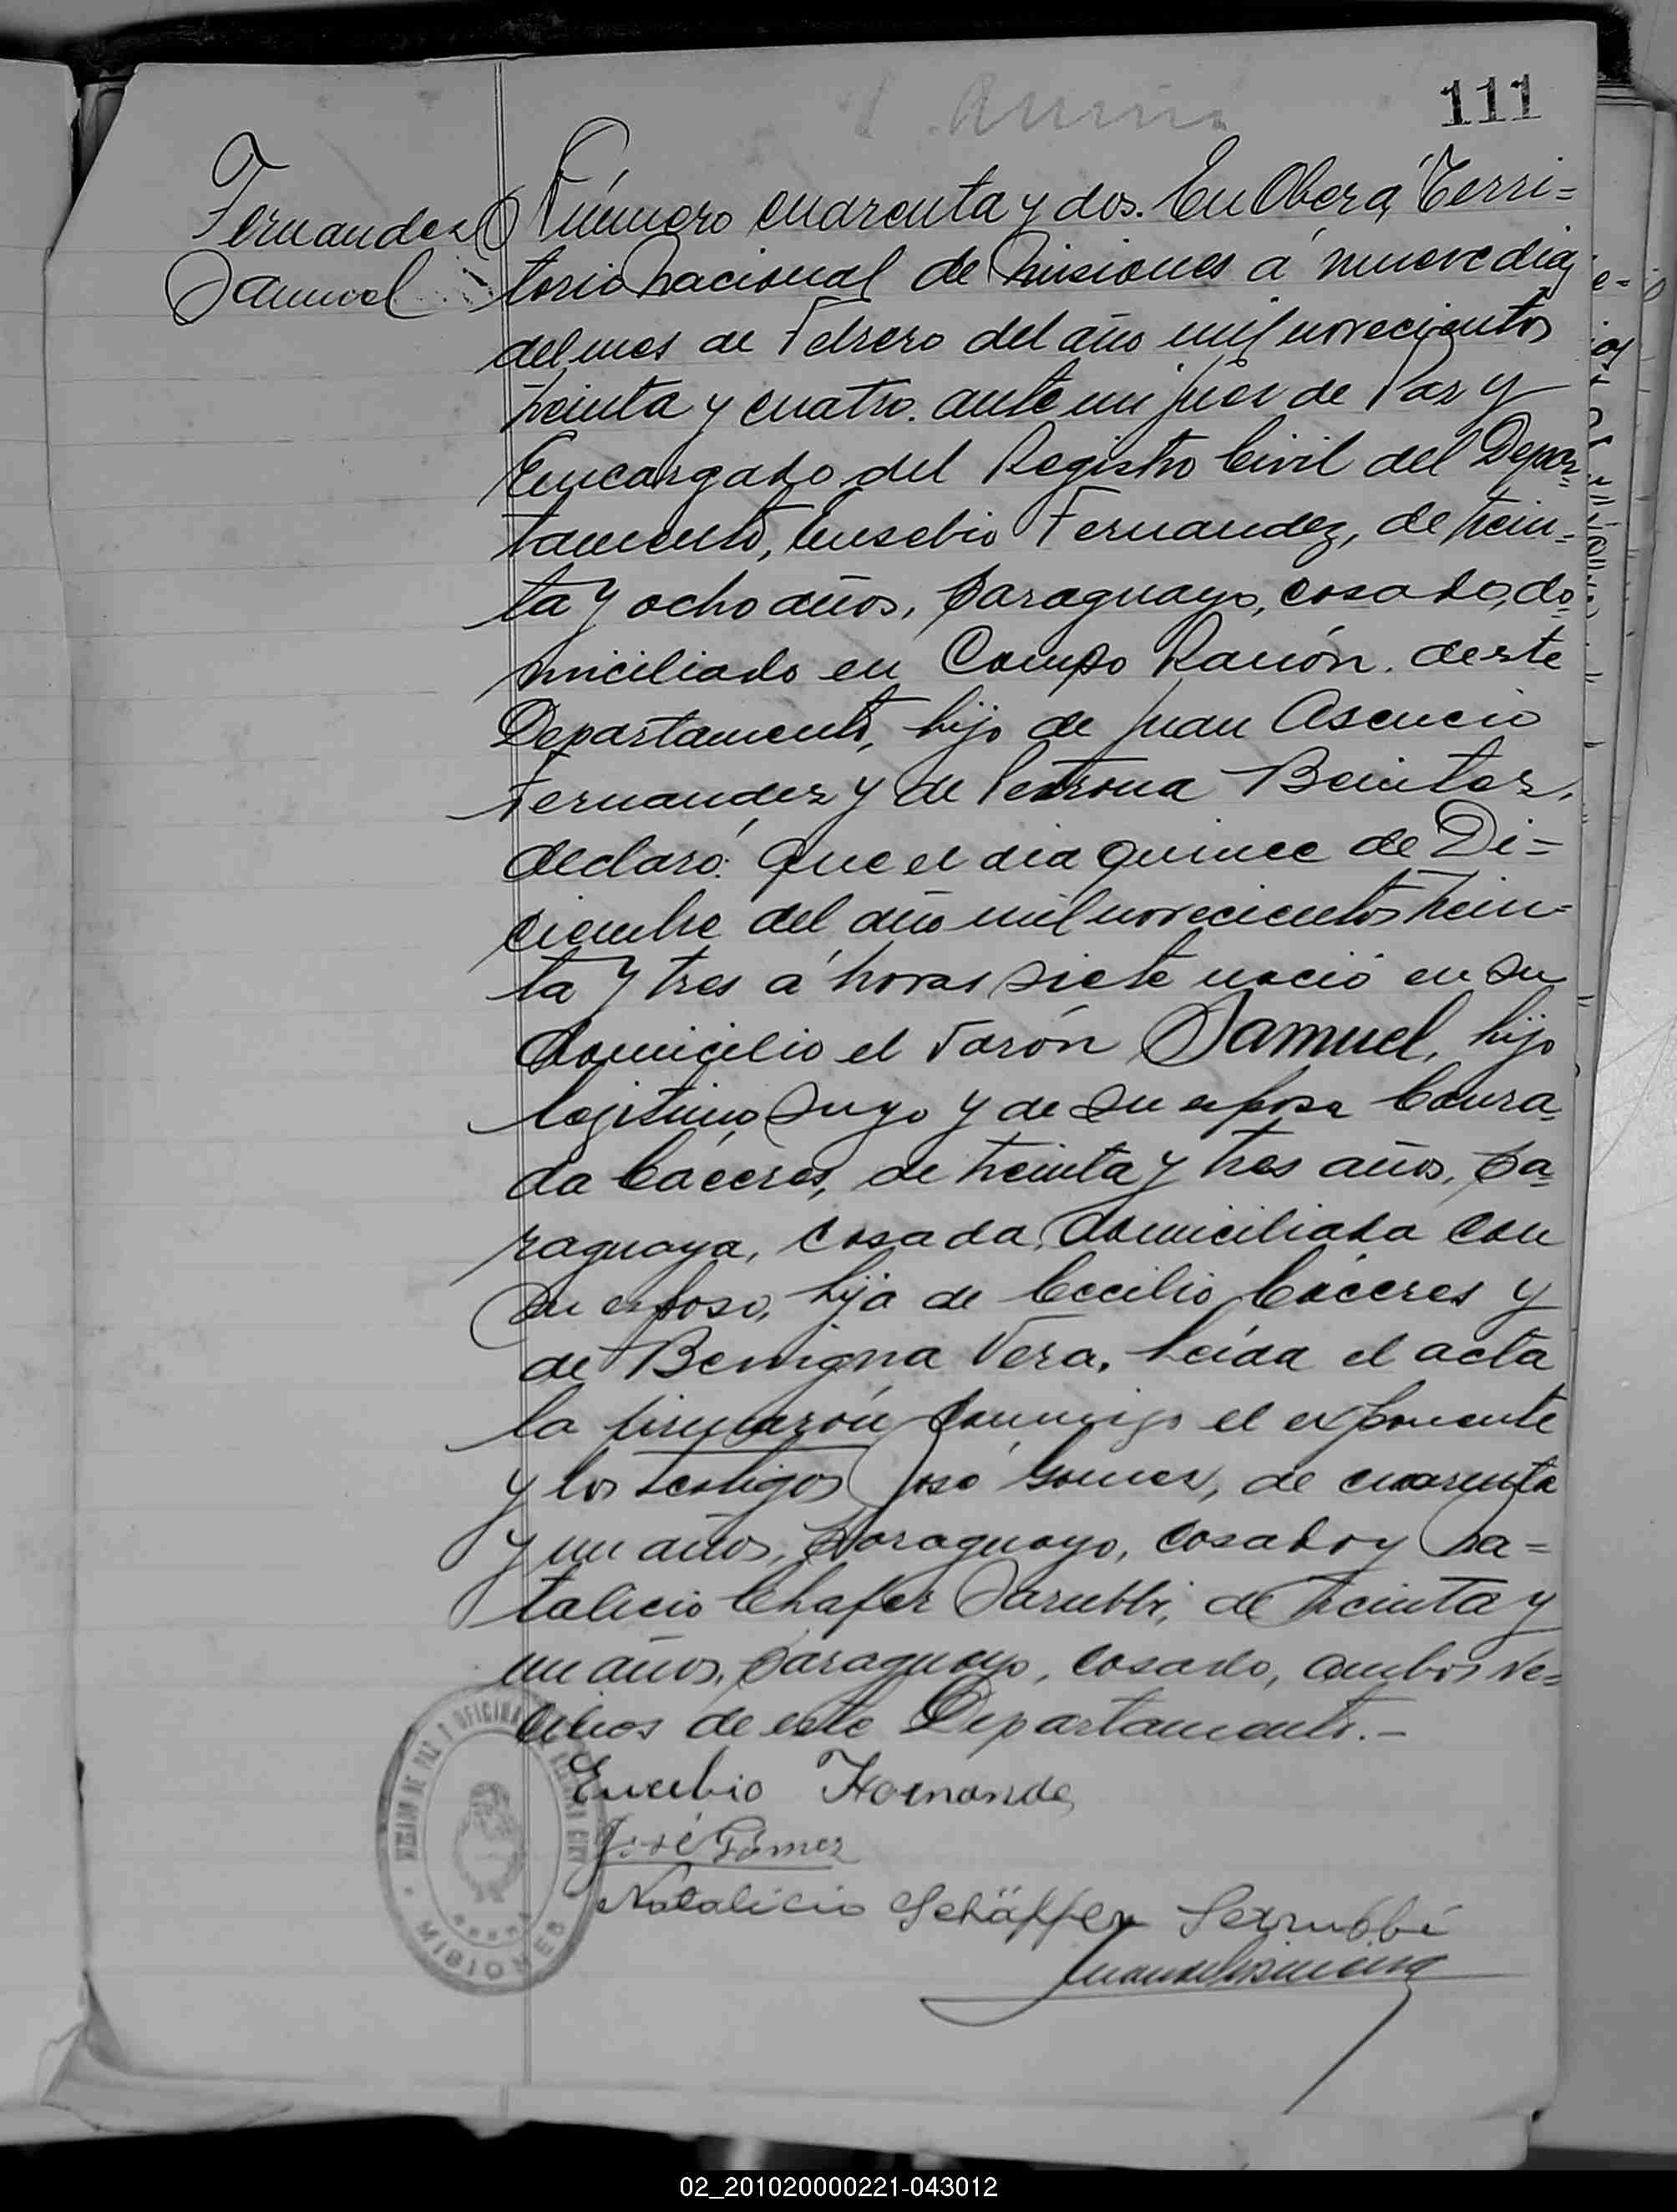 111
Fernandez
Samuel
Número cuarenta y dos. En Oberá, Terri=
torio Nacional de Misiones á nueve dias
del mes de Febrero del año mil novecientos
treinta y cuatro. ante mi Juez de Paz y
Encargado del Registro Civil del Depar=
tamento, Eusebio Fernandez, de trein=
ta y ocho años, paraguayo, casado, do=
miciliado en Campo Ramón. deste
Departamento, hijo de Juan Asencio
Fernandez y de Petrona Benitez,
declaró: Que el dia quince de Di=
ciembre del año mil novecientos trein=
ta y tres á horas siete nació en su
domicilio el varón Samuel, hijo
legitimo suyo y de su esposa Conra=
da Cáceres, de treinta y tres años, pa=
raguaya, casada, domiciliada con
su esposo, hija de Cecilio Cáceres y
de Benigna Vera. Leida el acta
la firmarón conmigo el exponente
y los testigos José Gomez, de cuarenta
y un años, paraguayo, casado y Na=
talicio Chafer Sarubbi, de treinta y
un años, paraguayo, casado, ambos ve=
cinos de este Departamento.-
Eusebio Fernande
José Gómez
Natalicio Schäffer Sarrubbi
JUZGADO DE PAZ Y OFICINA REGISTRO CIVIL
MISIONES
02_201020000221-043012